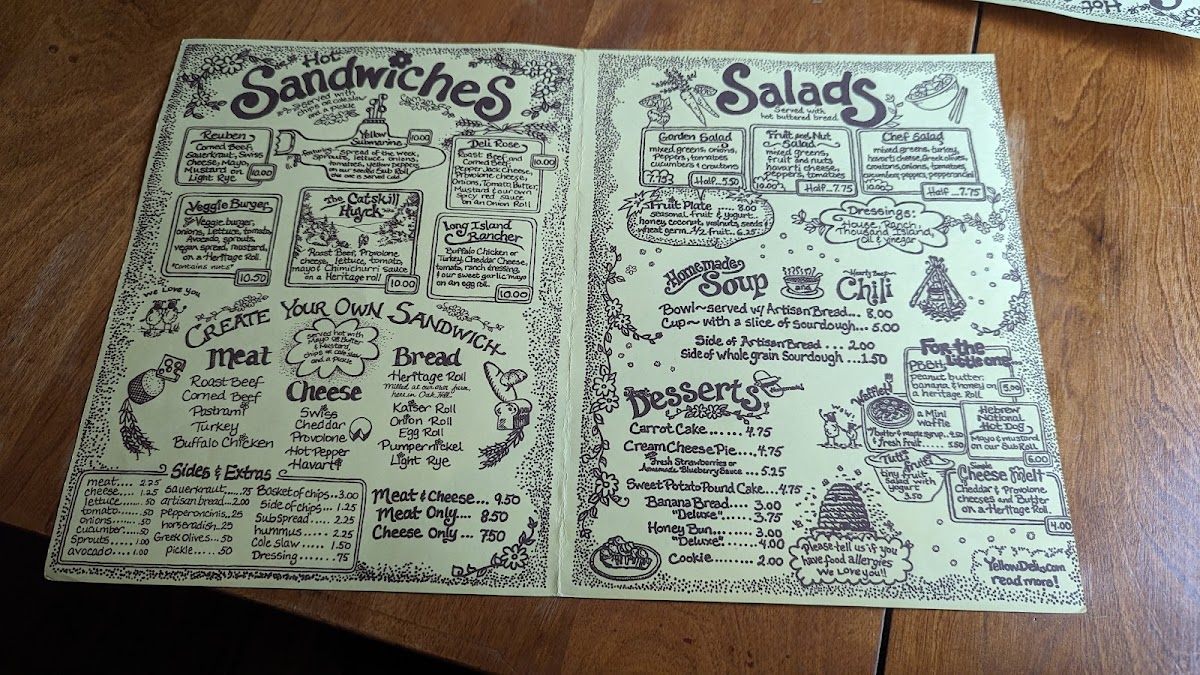 Hot
Sandwiches
Served with
chips or cole slaw
and a pickle
Reuben
Corned Beef,
Sauerkraut, Swiss
Cheese, Mayo,
Mustard on
Light Rye
10.00
Yellow
Submarine
10.00
Featuring
spread of the week
Sprouts, lettuce, onions,
tomatoes, yellow peppers
on our seeded Sub Roll
this one is served cold.
Deli Rose
Roast Beef and
Corned Beef,
Pepper Jack Cheese,
Provolone cheese,
Onions, Tomato, Butter,
Mustard & our own
spicy red sauce
on an Onion Roll
10.00
Veggie Burger
Veggie burger,
onions, Lettuce, tomato,
Avocado, sprouts,
vegan spread, mustard,
on a Heritage Roll.
*contains nuts*
10.50
The Catskill
Huyck
Roast Beef, Provolone
cheese, lettuce, tomato,
mayo & Chimichurri sauce
on a Heritage roll
10.00
Long Island
Rancher
Buffalo Chicken or
Turkey, Cheddar Cheese,
tomato, ranch dressing,
& our sweet garlic mayo
on an egg roll.
10.00
We Love you
Create Your Own Sandwich
served hot with
Mayo or Butter
& Mustard,
chips or cole slaw
and a pickle
Meat
Roast Beef
Corned Beef
Pastrami
Turkey
Buffalo Chicken
Cheese
Swiss
Cheddar
Provolone
Hot Pepper
Havarti
Bread
Heritage Roll
Milled at our own farm,
here in Oak Hill
Kaiser Roll
Onion Roll
Egg Roll
Pumpernickel
Light Rye
Sides & Extras
meat.... 2.25
cheese.... 1.25
lettuce..... .50
tomato..... .50
onions..... .50
cucumber.... .50
Sprouts.... 1.00
avocado.... 1.00
sauerkraut.... .75
artisan bread... 2.00
pepperoncinis.. .25
horseradish.. .25
Greek Olives... .50
pickle.... .50
Basket of chips... 3.00
side of chips... 1.25
Sub Spread.... 2.25
hummus.... 2.25
Cole slaw.... 1.50
Dressing..... .75
Meat & Cheese... 9.50
Meat Only.... 8.50
Cheese Only... 7.50
Salads
Served with
hot buttered bread.
Garden Salad
mixed greens, onions,
Peppers, tomatoes
cucumbers & croutons
7.75
Half...5.50
Fruit and Nut
Salad
mixed greens,
fruit and nuts
havarti cheese,
peppers, tomatoes
10.00
Half...7.75
Chef Salad
mixed greens, turkey,
havarti cheese, Greek olives,
croutons, onions, tomatoes,
cucumbers, peppers, pepperoncini
10.00
Half...7.75
Fruit Plate...... 8.00
seasonal fruit & yogurt,
honey, coconut, walnuts, seeds
wheat germ. 1/2 fruit... 6.25
Dressings:
House, Ranch,
Thousand Island,
oil & vinegar
Homemade
Soup
and
Hearty Beef
Chili
Bowl~served w/ Artisan Bread... 8.00
Cup~with a slice of sourdough... 5.00
Side of Artisan Bread ... 2.00
Side of whole grain Sourdough ... 1.50
Desserts
homemade!
Carrot Cake...... 4.75
Cream Cheese Pie.... 4.75
with Fresh Strawberries or
homemade Blueberry Sauce... 5.25
Sweet Potato Pound Cake...4.75
Banana Bread.... 3.00
"Deluxe".... 3.75
Honey Bun........ 3.00
"Deluxe".... 4.00
Cookie..... 2.00
For the
little ones
PBBH
peanut butter
banana & honey on
a heritage Roll
5.00
Waffles
a Mini
Waffle
w/ butter & maple syrup... 4.50
& fresh fruit...... 5.50
Hebrew
National
Hot Dog
Mayo & mustard
on our Sub Roll
6.00
Tutti fruitti
tiny fruit
Salad with
yogurt
3.50
Simple
Cheese Melt
Cheddar & Provolone
cheeses and Butter
on a Heritage Roll.
4.00
Please tell us if you
have food allergies
We Love you!!
YellowDeli.com
read more!
Hot